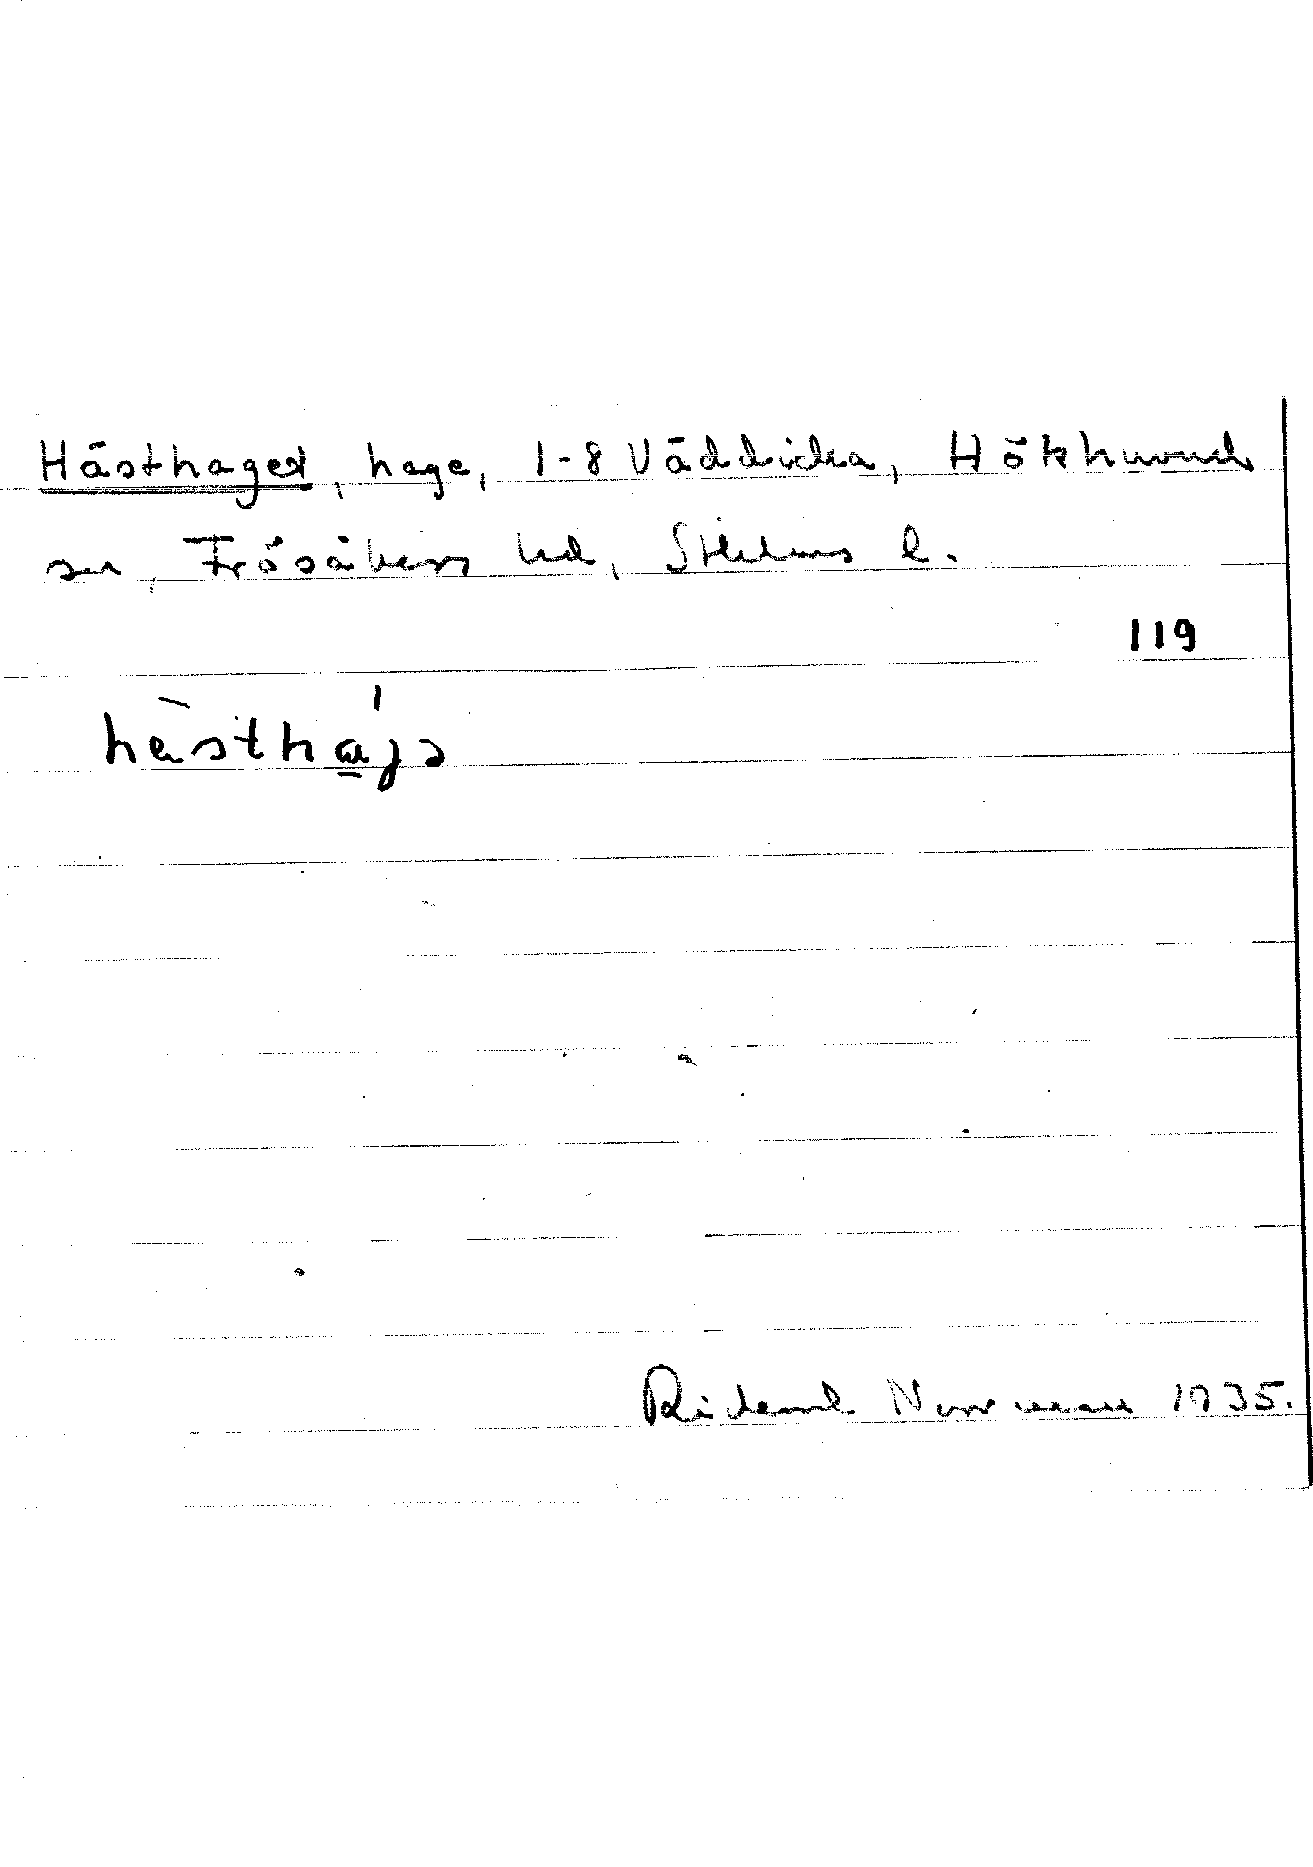 Hästhagen, hage, 1-8 Väddicka, Hökhuvuds
sn, Frösåkers hd, Sthlms l.
119
hàsthájə
Rickard Norrman 1935.